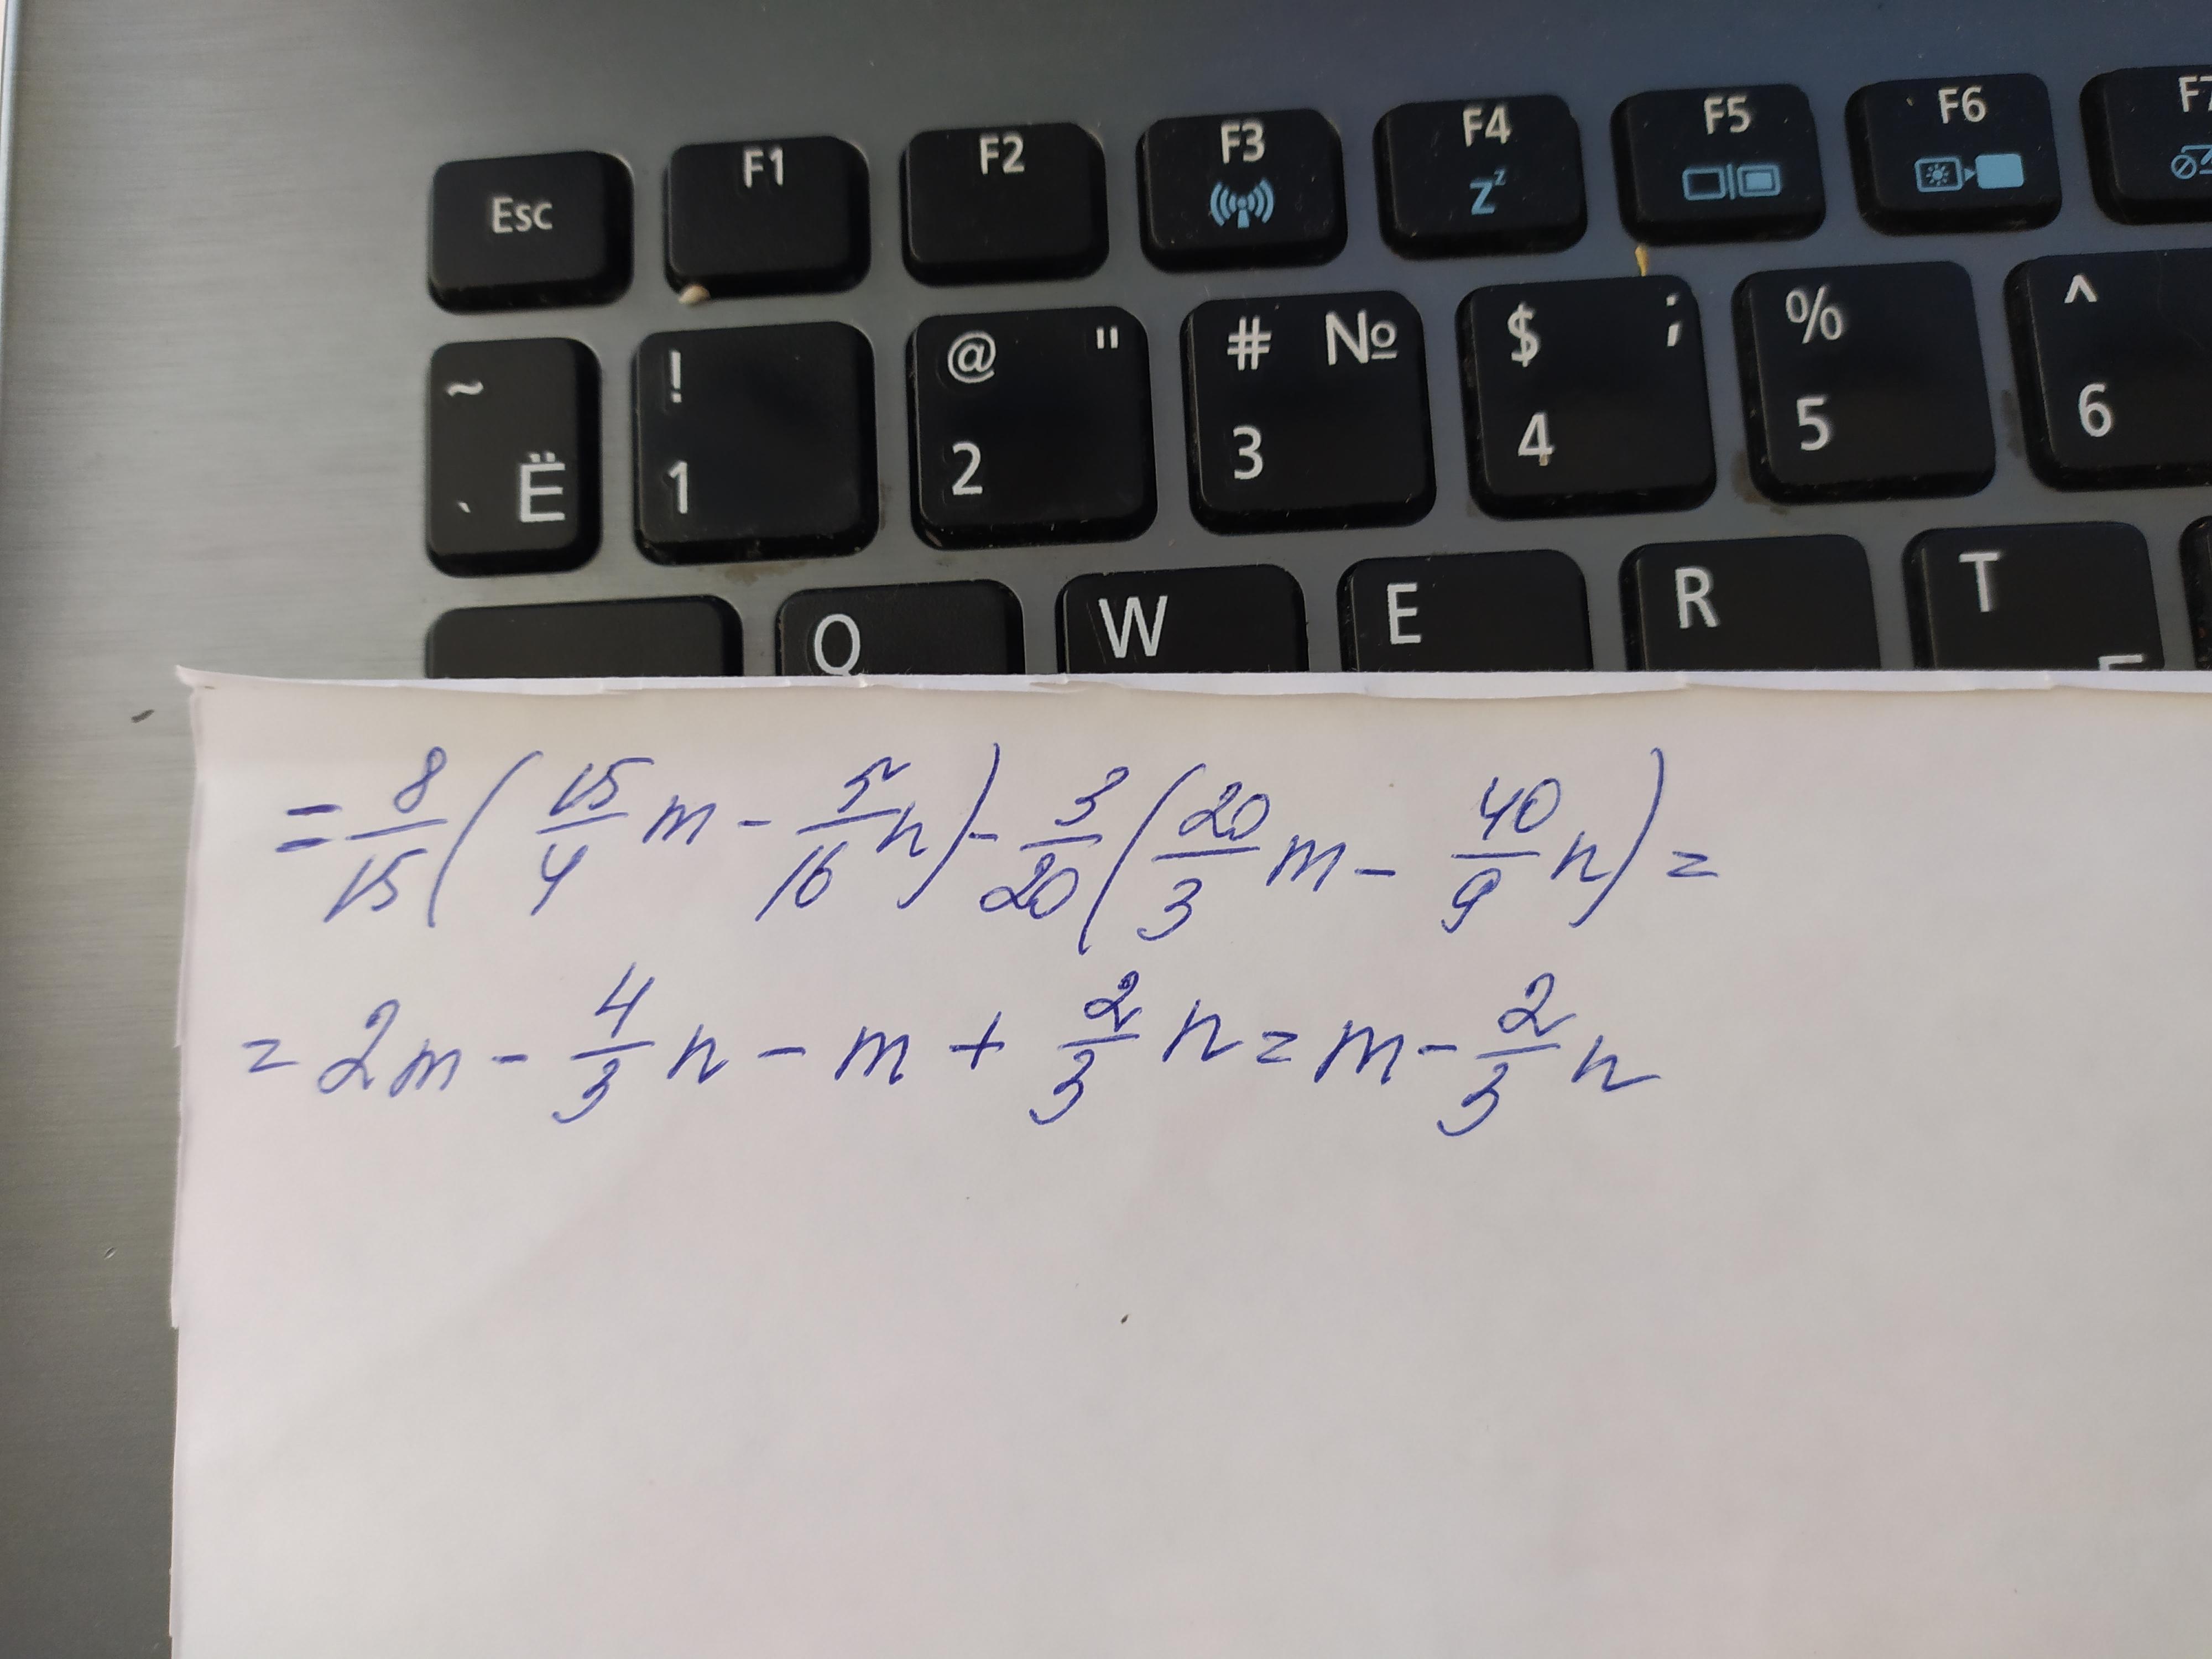 F1 F2 F3 F4 F5 F6 F7
Esc Zz
~ ! @ " # № $ ; % ^
` Ё 1 2 3 4 5 6
Q W E R T
= 8/15 ( 15/4 m - 5/16 n ) - 3/20 ( 20/3 m - 40/9 n ) =
= 2m - 4/3 n - m + 2/3 n = m - 2/3 n